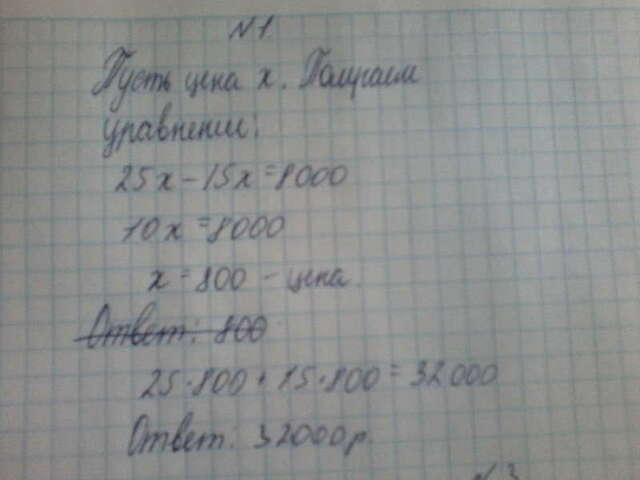 №1.
Пусть цена х. Получаем
уравнении:
25х - 15х = 8000
10х = 8000
х = 800 - цена
Ответ: 800
25·800 + 15·800 = 32000
Ответ: 32000р.
№3